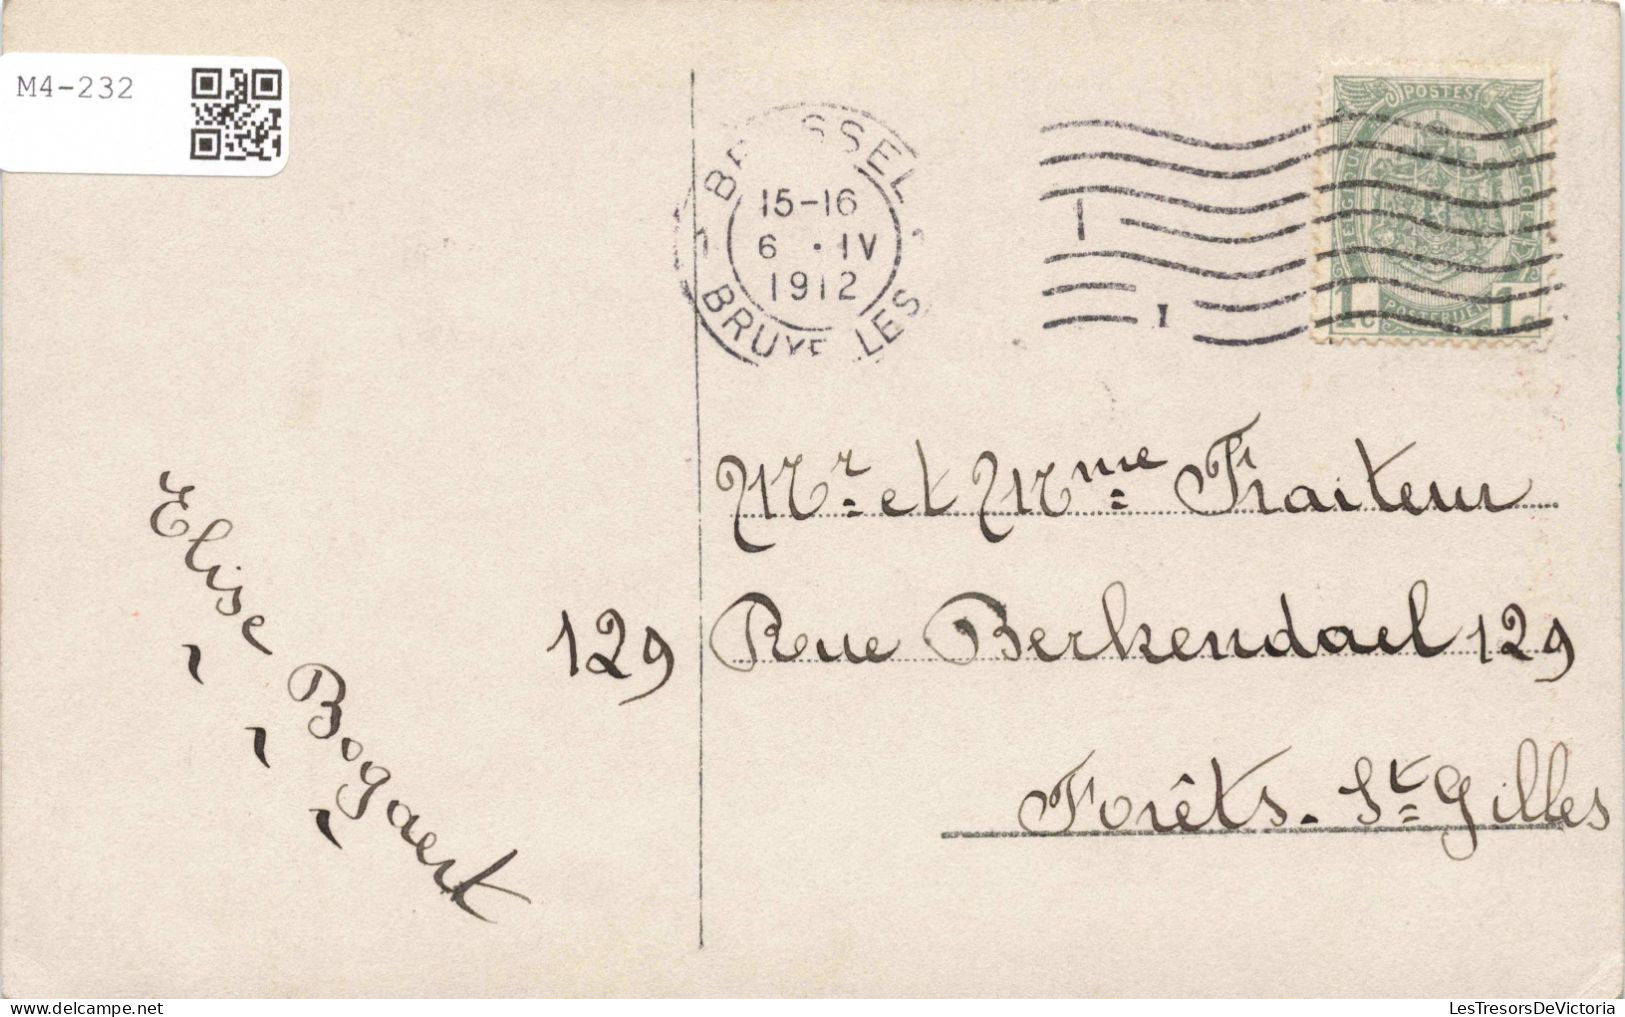 M4-232
BRUSSEL
15-16
6 · IV
1912
BRUXELLES
1
I
POSTES
BELGIQUE
BELGIË
1c POSTERIJEN 1c
Mr. et Mme Fraiteur
129 Rue Berkendael 129
Forêts. St Gilles
Elise Bogaert
LesTresorsDeVictoria